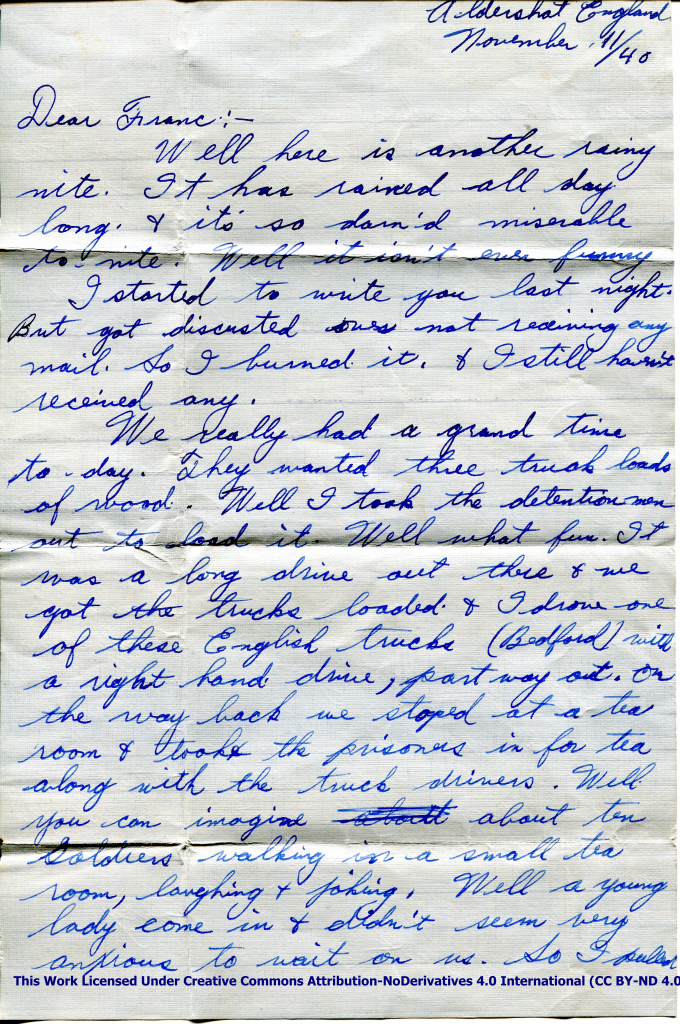 Aldershot England
November 11/40
Dear Franc:-
Well here is another rainy
nite. It has rained all day
long. & it's so darn'd miserable
to-nite. Well it isn't even funny
I started to write you last night.
But got discusted over not receiving any
mail. So I burned it. & I still haven't
received any.
We really had a grand time
to-day. They wanted three truck loads
of wood. Well I took the detention men
out to load it. Well what fun. It
was a long drive out there & we
got the trucks loaded. & I drove one
of these English trucks (Bedford) with
a right hand drive, part way out. On
the way back we stoped at a tea
room & took the prisoners in for tea
along with the truck drivers. Well
you can imagine about about ten
Soldiers walking in a small tea
room, laughing & joking. Well a young
lady come in & didn't seem very
anxious to wait on us. So I pulled
This Work Licensed Under Creative Commons Attribution-NoDerivatives 4.0 International (CC BY-ND 4.0